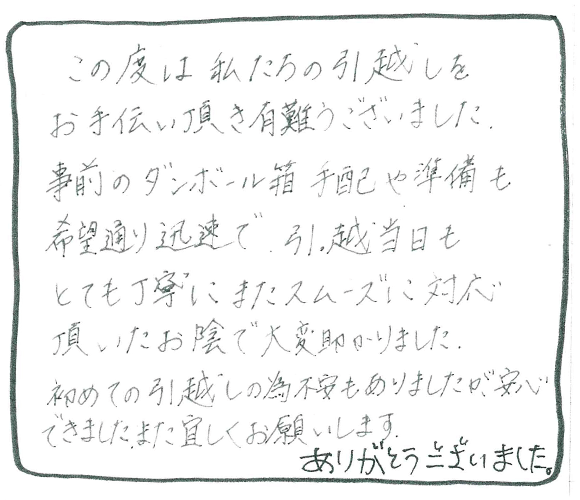 この度は私たちの引越しを
お手伝い頂き有難うございました.
事前のダンボール箱手配や準備も
希望通り迅速で.引越当日も
とても丁寧にまたスムーズに対応
頂いたお陰で大変助かりました.
初めての引越しの為不安もありましたが、安心
できました.また宜しくお願いします.
ありがとうございました。